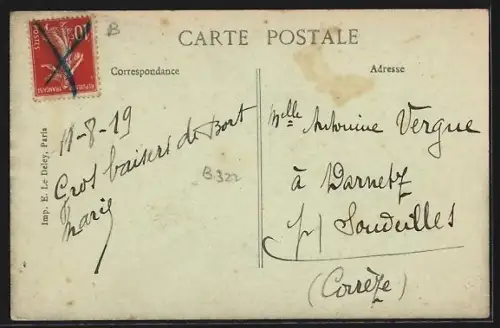 B
CARTE POSTALE
Correspondance
Adresse
10
POSTES
REPUBLIQUE FRANÇAISE
11-8-19
Gros baisers de Bort
Marie
B.322
Imp. E. Le Deley, Paris
Melle Antoinine Vergne
à Darnetz
p/ Soudeilles
(Corrèze)